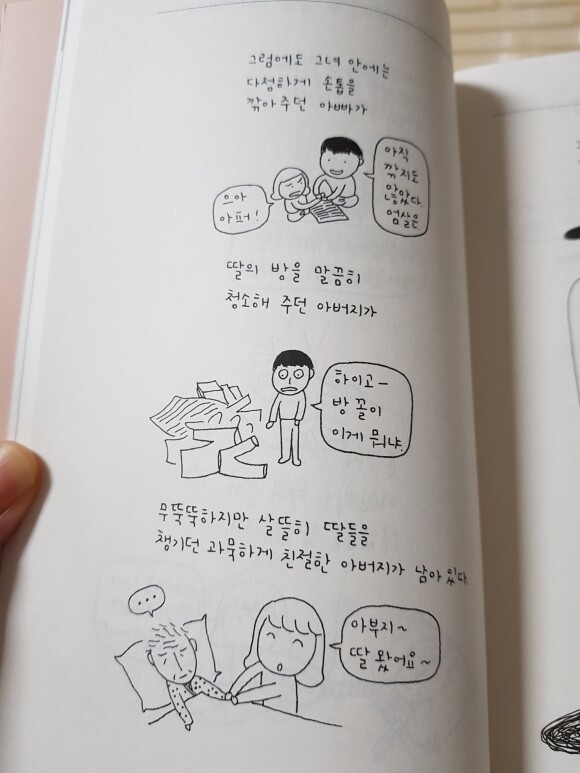 그럼에도 그녀 안에는
다정하게 손톱을
깎아 주던 아빠가
으아
아퍼!
아직
깎지도
않았다.
엄살은
딸의 방을 말끔히
청소해 주던 아버지가
하이고-
방 꼴이
이게 뭐냐.
무뚝뚝하지만 살뜰히 딸들을
챙기던 과묵하게 친절한 아버지가 남아있다.
...
아부지~
딸 왔어요~